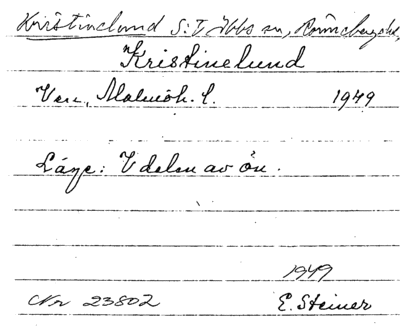 Kristinelund S:t Ibbs sn, Rönnebergs hd,
Kristinelund
Ven, Malmöh. l. 1949
Läge: V delen av ön.
1949
Nr 23802 E. Steiner